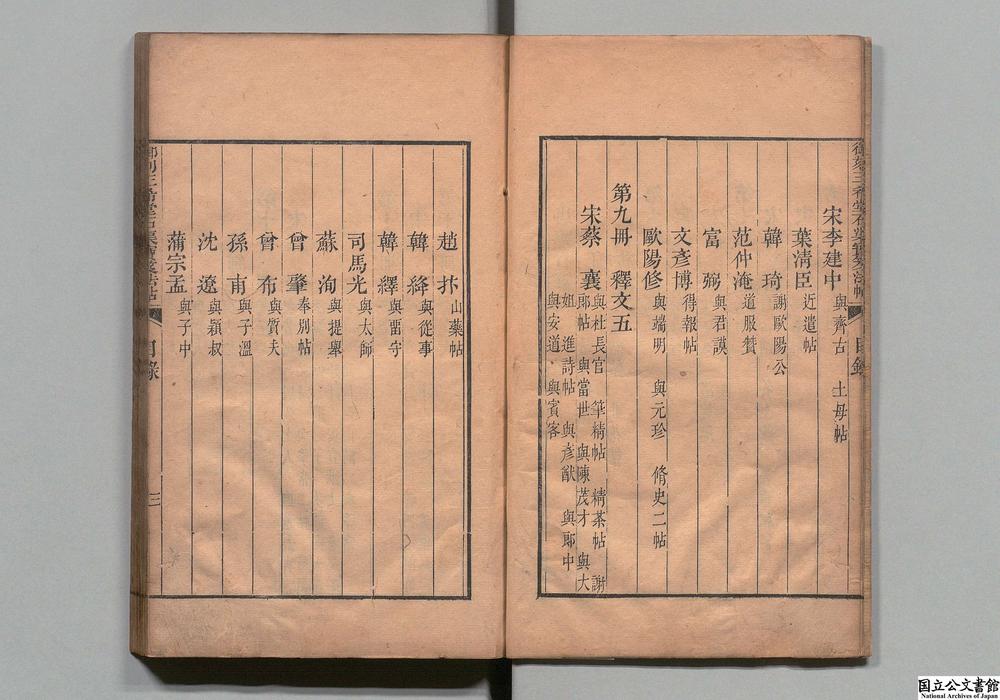 宋李建中 與齊古 土母帖
葉清臣 近遣帖
韓琦 謝歐陽公
范仲淹 道服贊
富弼 與君謨
文彥博 得報帖
歐陽修 與端明 與元珍 脩史二帖
第九冊 釋文五
宋蔡襄 與杜長官 筆精帖 精茶帖 謝
郎帖 與當世 與陳茂才 與大
姐 進詩帖 與彥猷 與郎中
與安道 與賓客
趙抃 山藥帖
韓絳 與從事
韓繹 與留守
司馬光 與太師
蘇洵 與提舉
曾肇 奉別帖
曾布 與質夫
孫甫 與子溫
沈遼 與穎叔
蒲宗孟 與子中
目錄
三
国立公文書館
National Archives of Japan